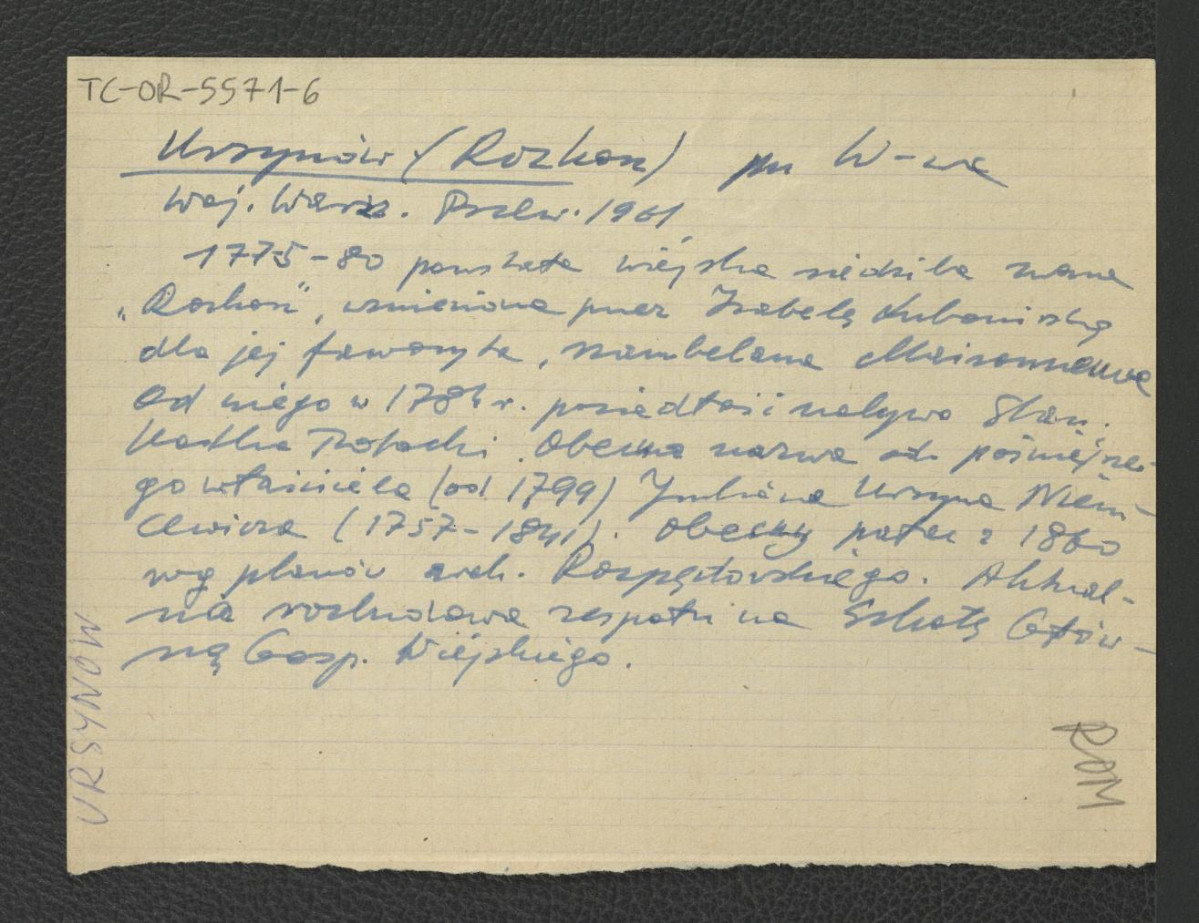 TC-OR-5571-6
Ursynów (Rozkosz) pw W-wa
woj. Warsz. Przew. 1961
1775-80 powstała wiejska siedziba zwana
"Roskosz", wzniesiona przez Izabelę Lubomirską
dla jej faworyta, szambelana Maisonneuve
Od niego w 1784 r. posiadłość nabywa Stan.
Kostka Potocki. Obecna nazwa od późniejsze-
go właściciela (od 1799) Juliana Ursyna Niem-
cewicza (1757-1841). Obecny pałac z 1860
wg planów arch. Rospędowskiego. Aktual-
nie rozbudowa zespołu na Szkołę Głów-
ną Gosp. Wiejskiego.
URSYNÓW
ROM